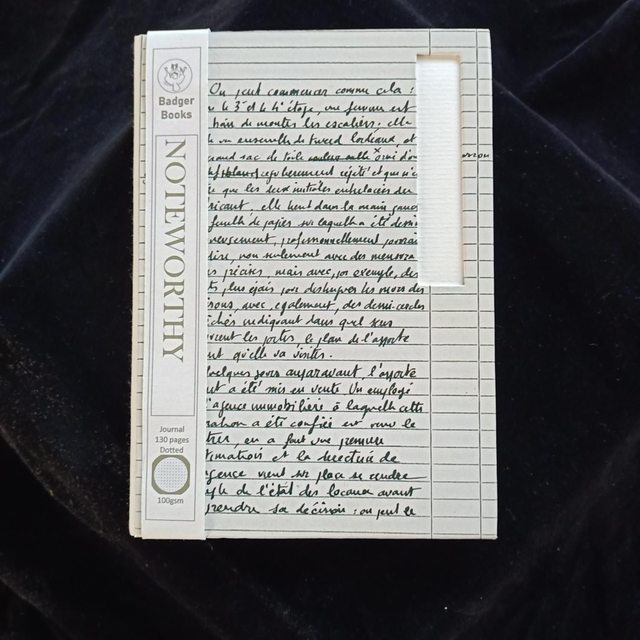 Badger
Books
NOTEWORTHY
Journal
130 pages
Dotted
100gsm
On peut commencer comme cela :
le 3e et le 4e étage, une femme est
train de monter les escaliers. elle
un ensemble de tweed
grand sac de toile
régulièrement répété et qui
que les deux initiales entrelacées du
elle tient dans la main gauche
feuille de papier sur laquelle a été
professionnellement
dire, non seulement avec des
précises, mais avec, par exemple, des
plus épais pour distinguer les murs des
avec, également, des demi-cercles
indiquant dans quel sens
les portes, le plan de l'apparte
qu'elle va visiter.
quelques jours auparavant, l'apparte
a été mis en vente. Un employé
l'agence immobilière à laquelle cette
a été confiée est venu le
en a fait une première
et la directrice de
vient sur place se rendre
de l'état des locaux avant
prendre sa décision : on peut le